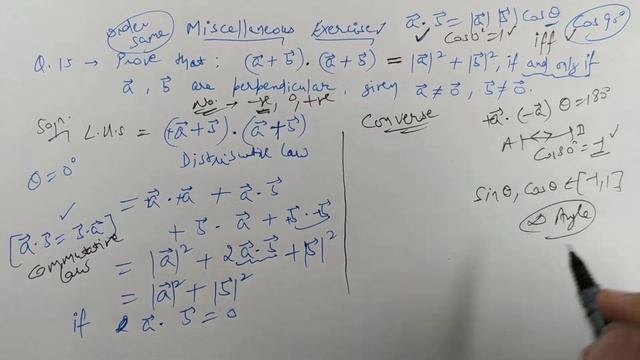 order same Miscellaneous Exercises a⃗·b⃗ = |a⃗||b⃗| cosθ
cos0° = 1 ✓ iff ✓ cos90°
Q.15 → Prove that: (a⃗+b⃗)·(a⃗+b⃗) = |a⃗|²+|b⃗|², if and only if
a⃗, b⃗ are perpendicular, given a⃗≠0⃗, b⃗≠0⃗.
No. → -ve, 0, +ve
Soln. L.H.S = (+a⃗+b⃗)·(a⃗+b⃗)
Distributive law
θ = 0°
= a⃗·+a⃗ + a⃗·b⃗
+ b⃗·a⃗ + b⃗·b⃗
[a⃗·b⃗ = b⃗·a⃗] ✓
commutative law
= |a⃗|² + 2a⃗·b⃗ + |b⃗|²
= |a⃗|² + |b⃗|²
if 2 a⃗·b⃗ = 0
Converse
+a⃗·(-a⃗) θ = 180°
A
cos180° = -1 ✓
sinθ, cosθ ∈ [-1,1]
Angle